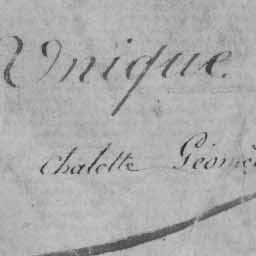 Unique.
Chalette Géomè